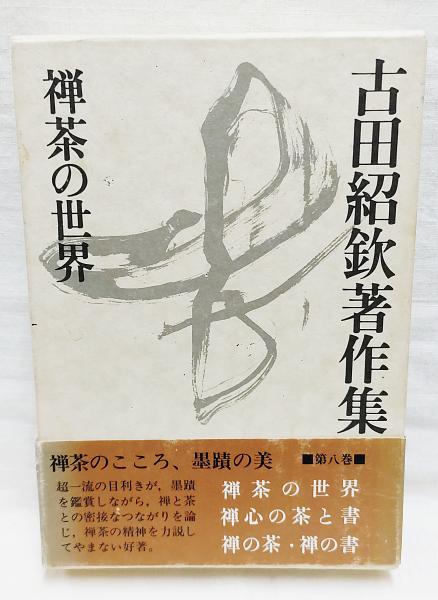 古田紹欽著作集
禅茶の世界
禅茶のこころ、墨蹟の美
■第八巻■
超一流の目利きが，墨蹟
を鑑賞しながら，禅と茶
との密接なつながりを論
じ，禅茶の精神を力説し
てやまない好著。
禅茶の世界
禅心の茶と書
禅の茶・禅の書